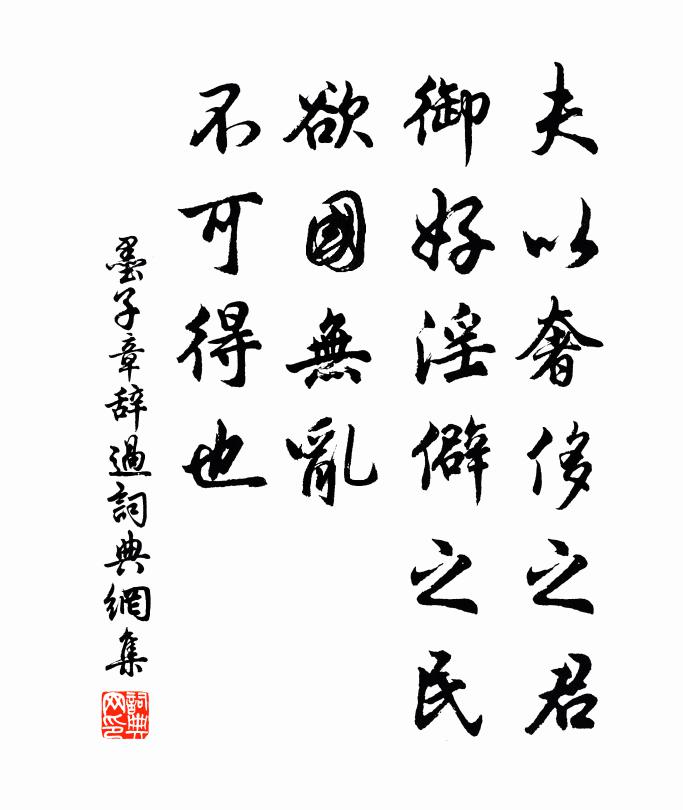 夫以奢侈之君
御好淫僻之民
欲國無亂
不可得也
墨子章辞過詞典網集
詞典
网印